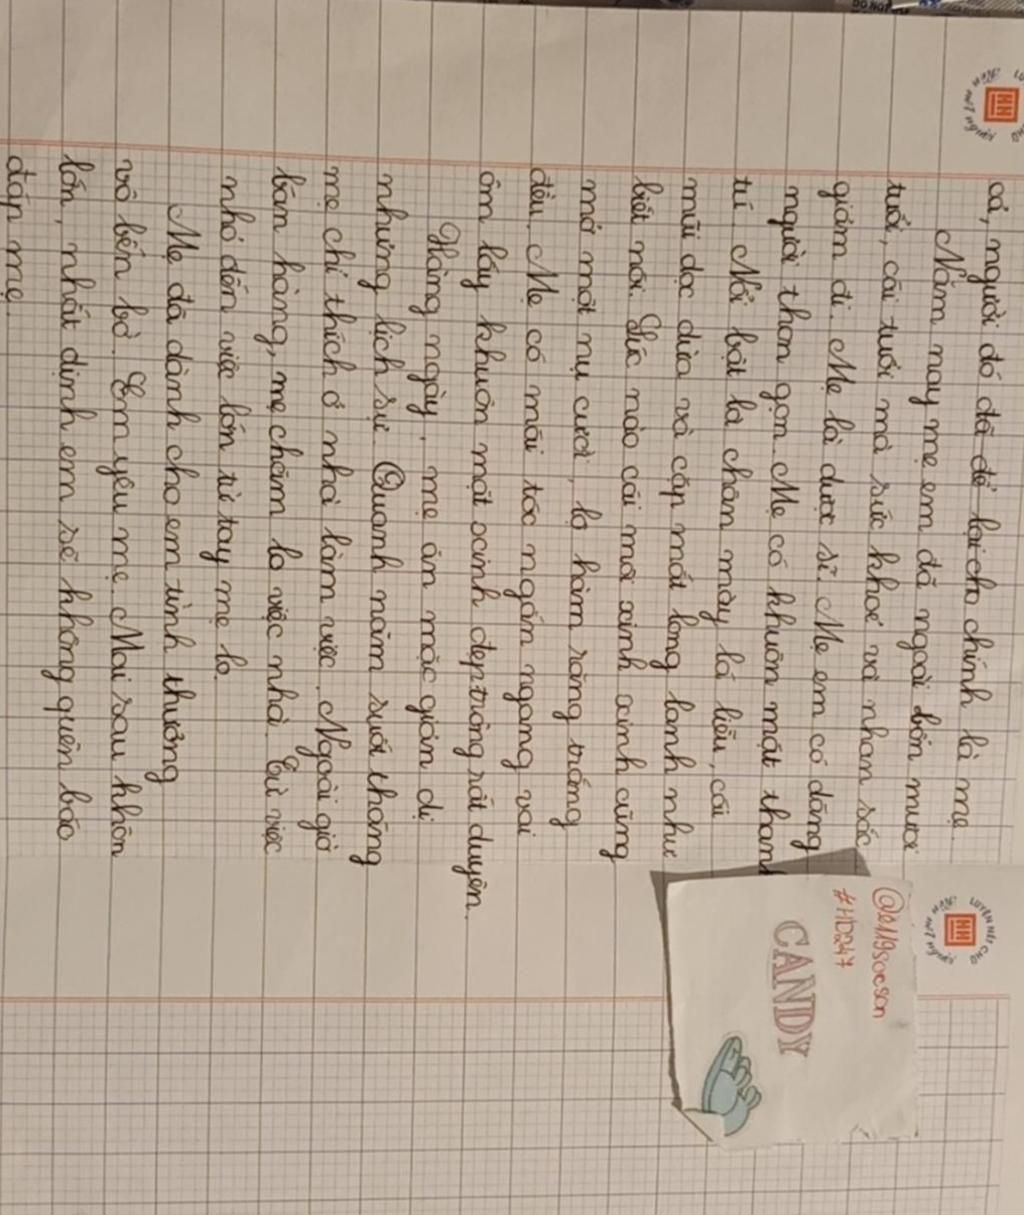 cả, người đó đã để lại cho chính là mẹ.
Năm nay mẹ em đã ngoài bốn mươi
tuổi, cái tuổi mà sức khoẻ và nhan sắc
giảm đi. Mẹ là dược sĩ. Mẹ em có dáng
người thon gọn. Mẹ có khuôn mặt thanh
tú. Nổi bật là chân mày lá liễu, cái
mũi dọc dừa và cặp mắt long lanh như
biết nói. Lúc nào cái môi xinh xinh cũng
mở một nụ cười, lộ hàm răng trắng
đều. Mẹ có mái tóc ngắn ngang vai
ôm lấy khuôn mặt xinh đẹp trông rất duyên.
Hàng ngày, mẹ ăn mặc giản dị
nhưng lịch sự. Quanh năm suốt tháng
mẹ chỉ thích ở nhà làm việc. Ngoài giờ
bán hàng, mẹ chăm lo việc nhà. Từ việc
nhỏ đến việc lớn từ tay mẹ lo.
Mẹ đã dành cho em tình thương
vô bến bờ. Em yêu mẹ. Mai sau khôn
lớn, nhất định em sẽ không quên báo
đáp mẹ.
LUYỆN NÉT CHỮ
NÂNG NÉT NGƯỜI
HH
#HD247
CANDY